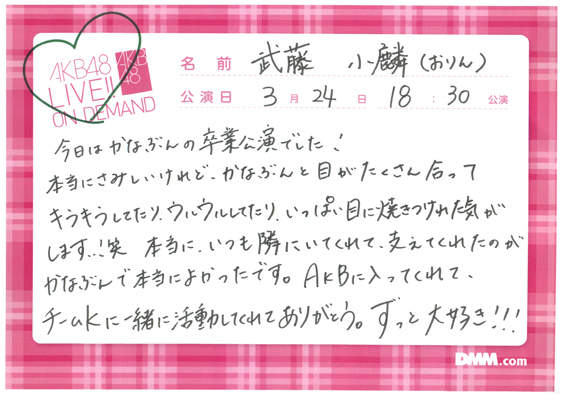 AKB48
LIVE!!
ON DEMAND
AKB
48
名前 武藤 小麟(おりん)
公演日 3月24日 18:30公演
今日はかなぶんの卒業公演でした!
本当にさみしいけれど、かなぶんと目がたくさん合って
キラキラしてたり、ウルウルしてたり、いっぱい目に焼きつけれた気が
します..!笑 本当に、いつも隣にいてくれて、支えてくれたのが
かなぶんで本当によかったです。AKBに入ってくれて、
チームKに一緒に活動してくれてありがとう。ずっと大好き!!!
DMM.com